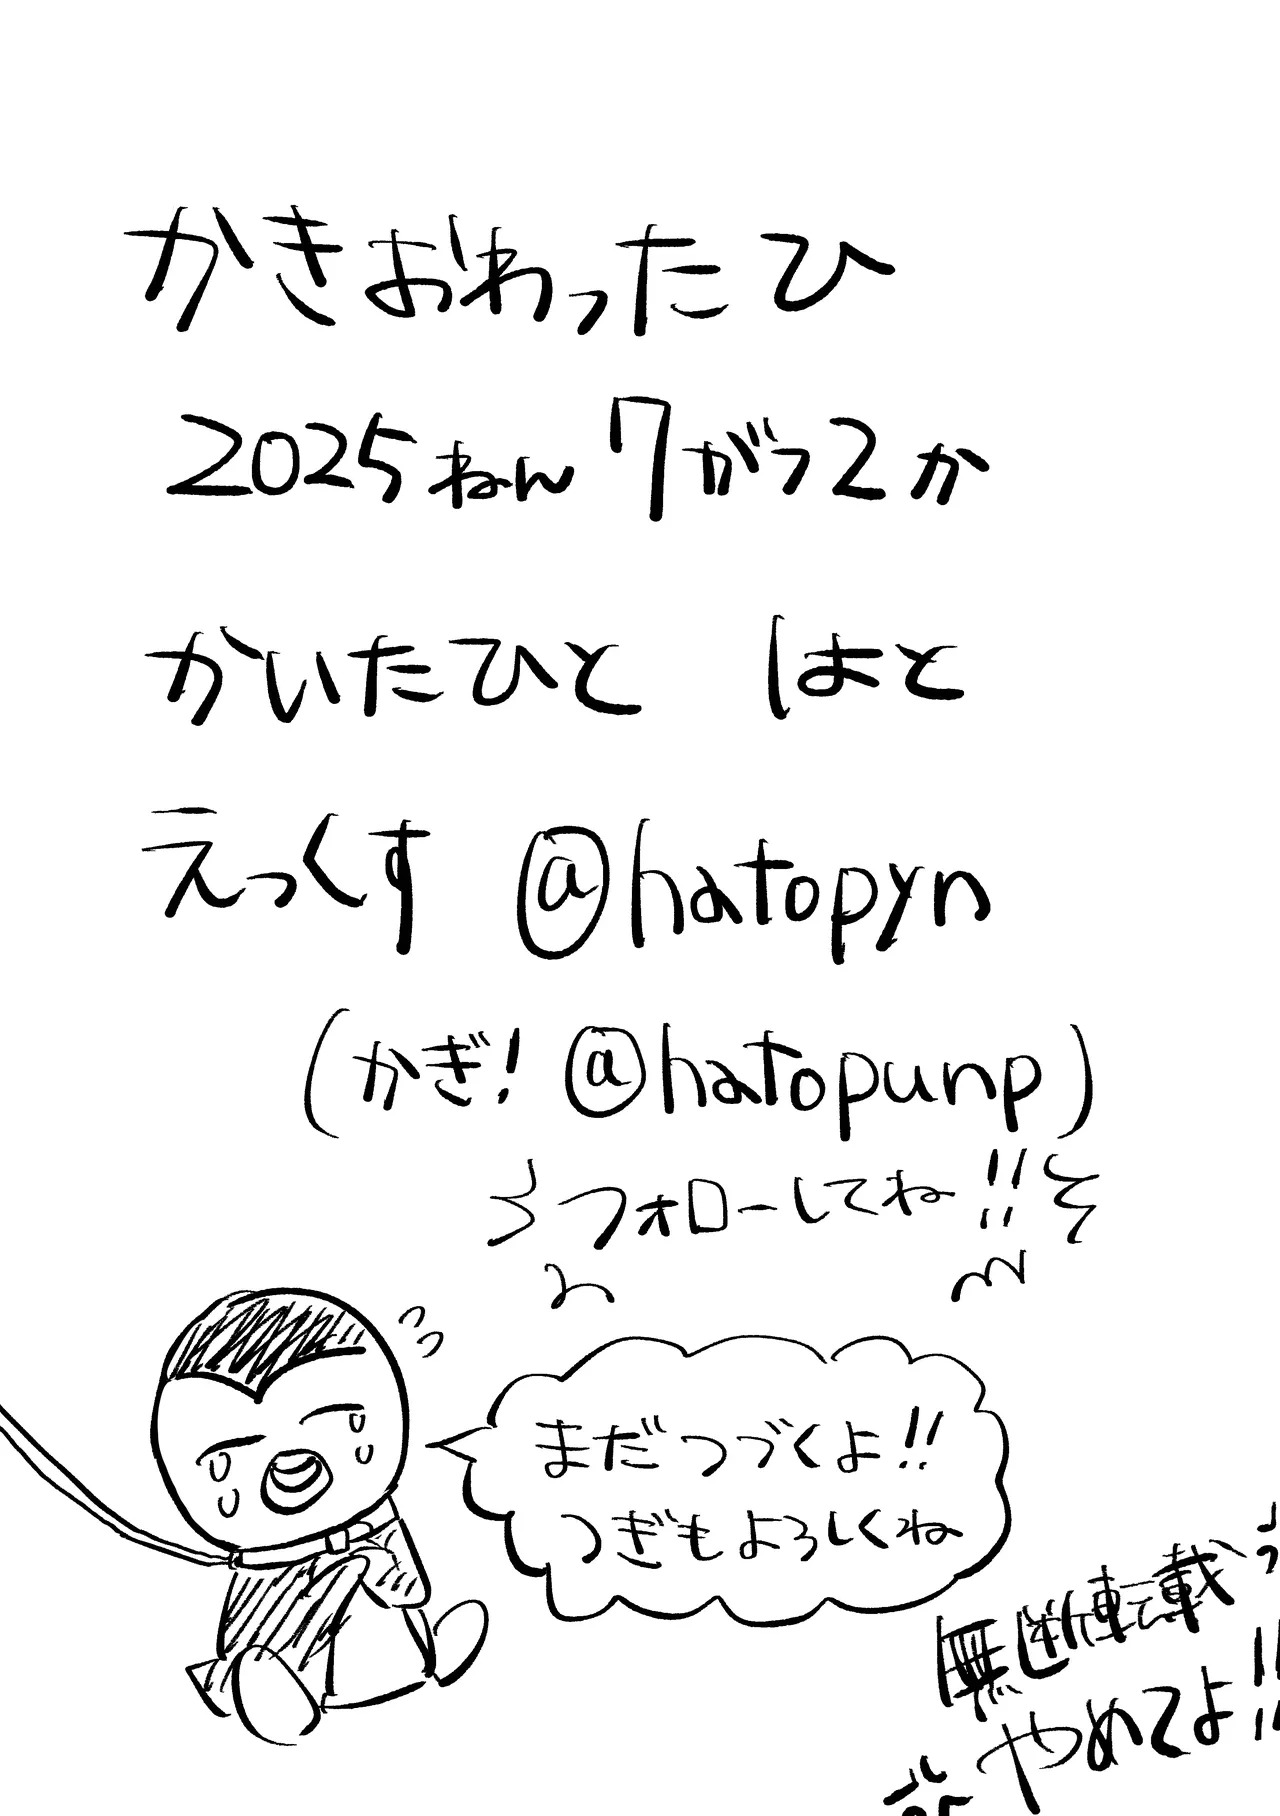 かきおわったひ
2025ねん7がつ2か
かいたひと はと
えっくす @hatopyn
(かぎ! @hatopunp)
フォローしてね!!
まだつづくよ!!
つぎもよろしくね
無断転載
やめてよ!!